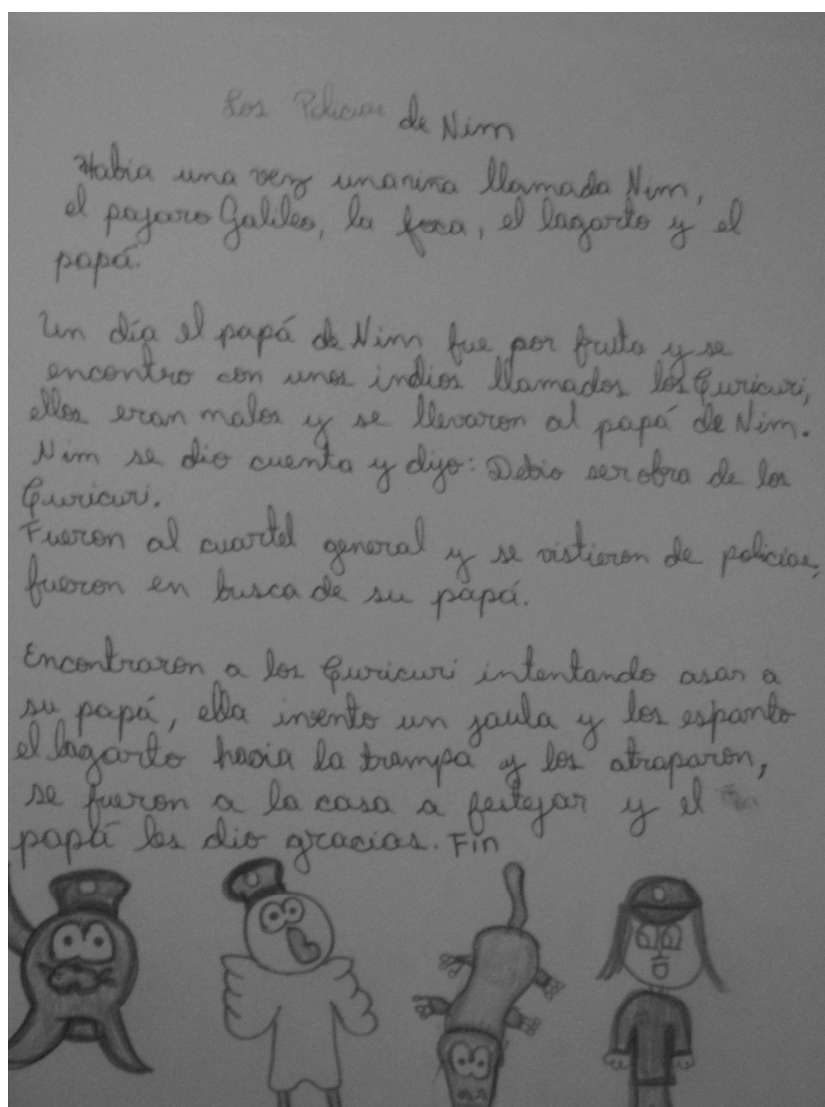 Los Policias de Nim
Habia una vez una niña llamada Nim,
el pajaro Galileo, la foca, el lagarto y el
papá.
Un día el papá de Nim fue por fruta y se
encontro con unos indios llamados los Curicuri,
ellos eran malos y se llevaron al papá de Nim.
Nim se dio cuenta y dijo: Debio ser obra de los
Curicuri.
Fueron al cuartel general y se vistieron de policias,
fueron en busca de su papá.
Encontraron a los Curicuri intentando asar a
su papá, ella invento un jaula y los espanto
el lagarto hacia la trampa y los atraparon,
se fueron a la casa a festejar y el
papá les dio gracias. Fin